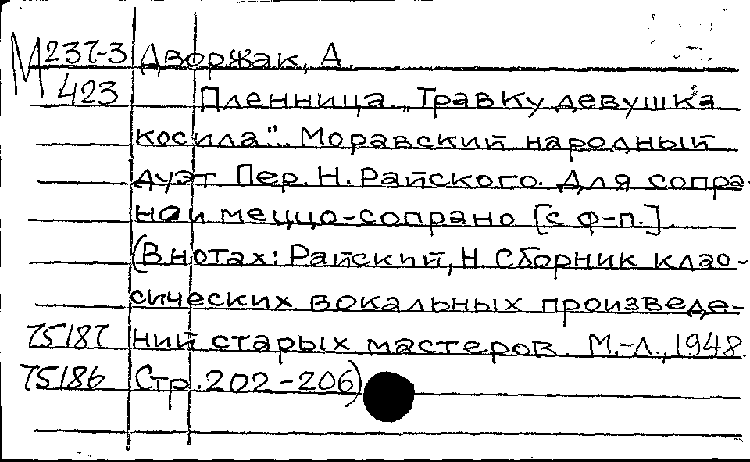 М 237-3 Дворжак, А.
423 Пленница „Травку девушка
косила". Моравский народный
дуэт Пер. Н. Райского. Для сопра-
но и меццо-сопрано [с ф-п.]
(В нотах: Райский, Н. Сборник клас-
сических вокальных произведе-
75187 ний старых мастеров. М.-Л., 1948
75186 Стр. 202-206)